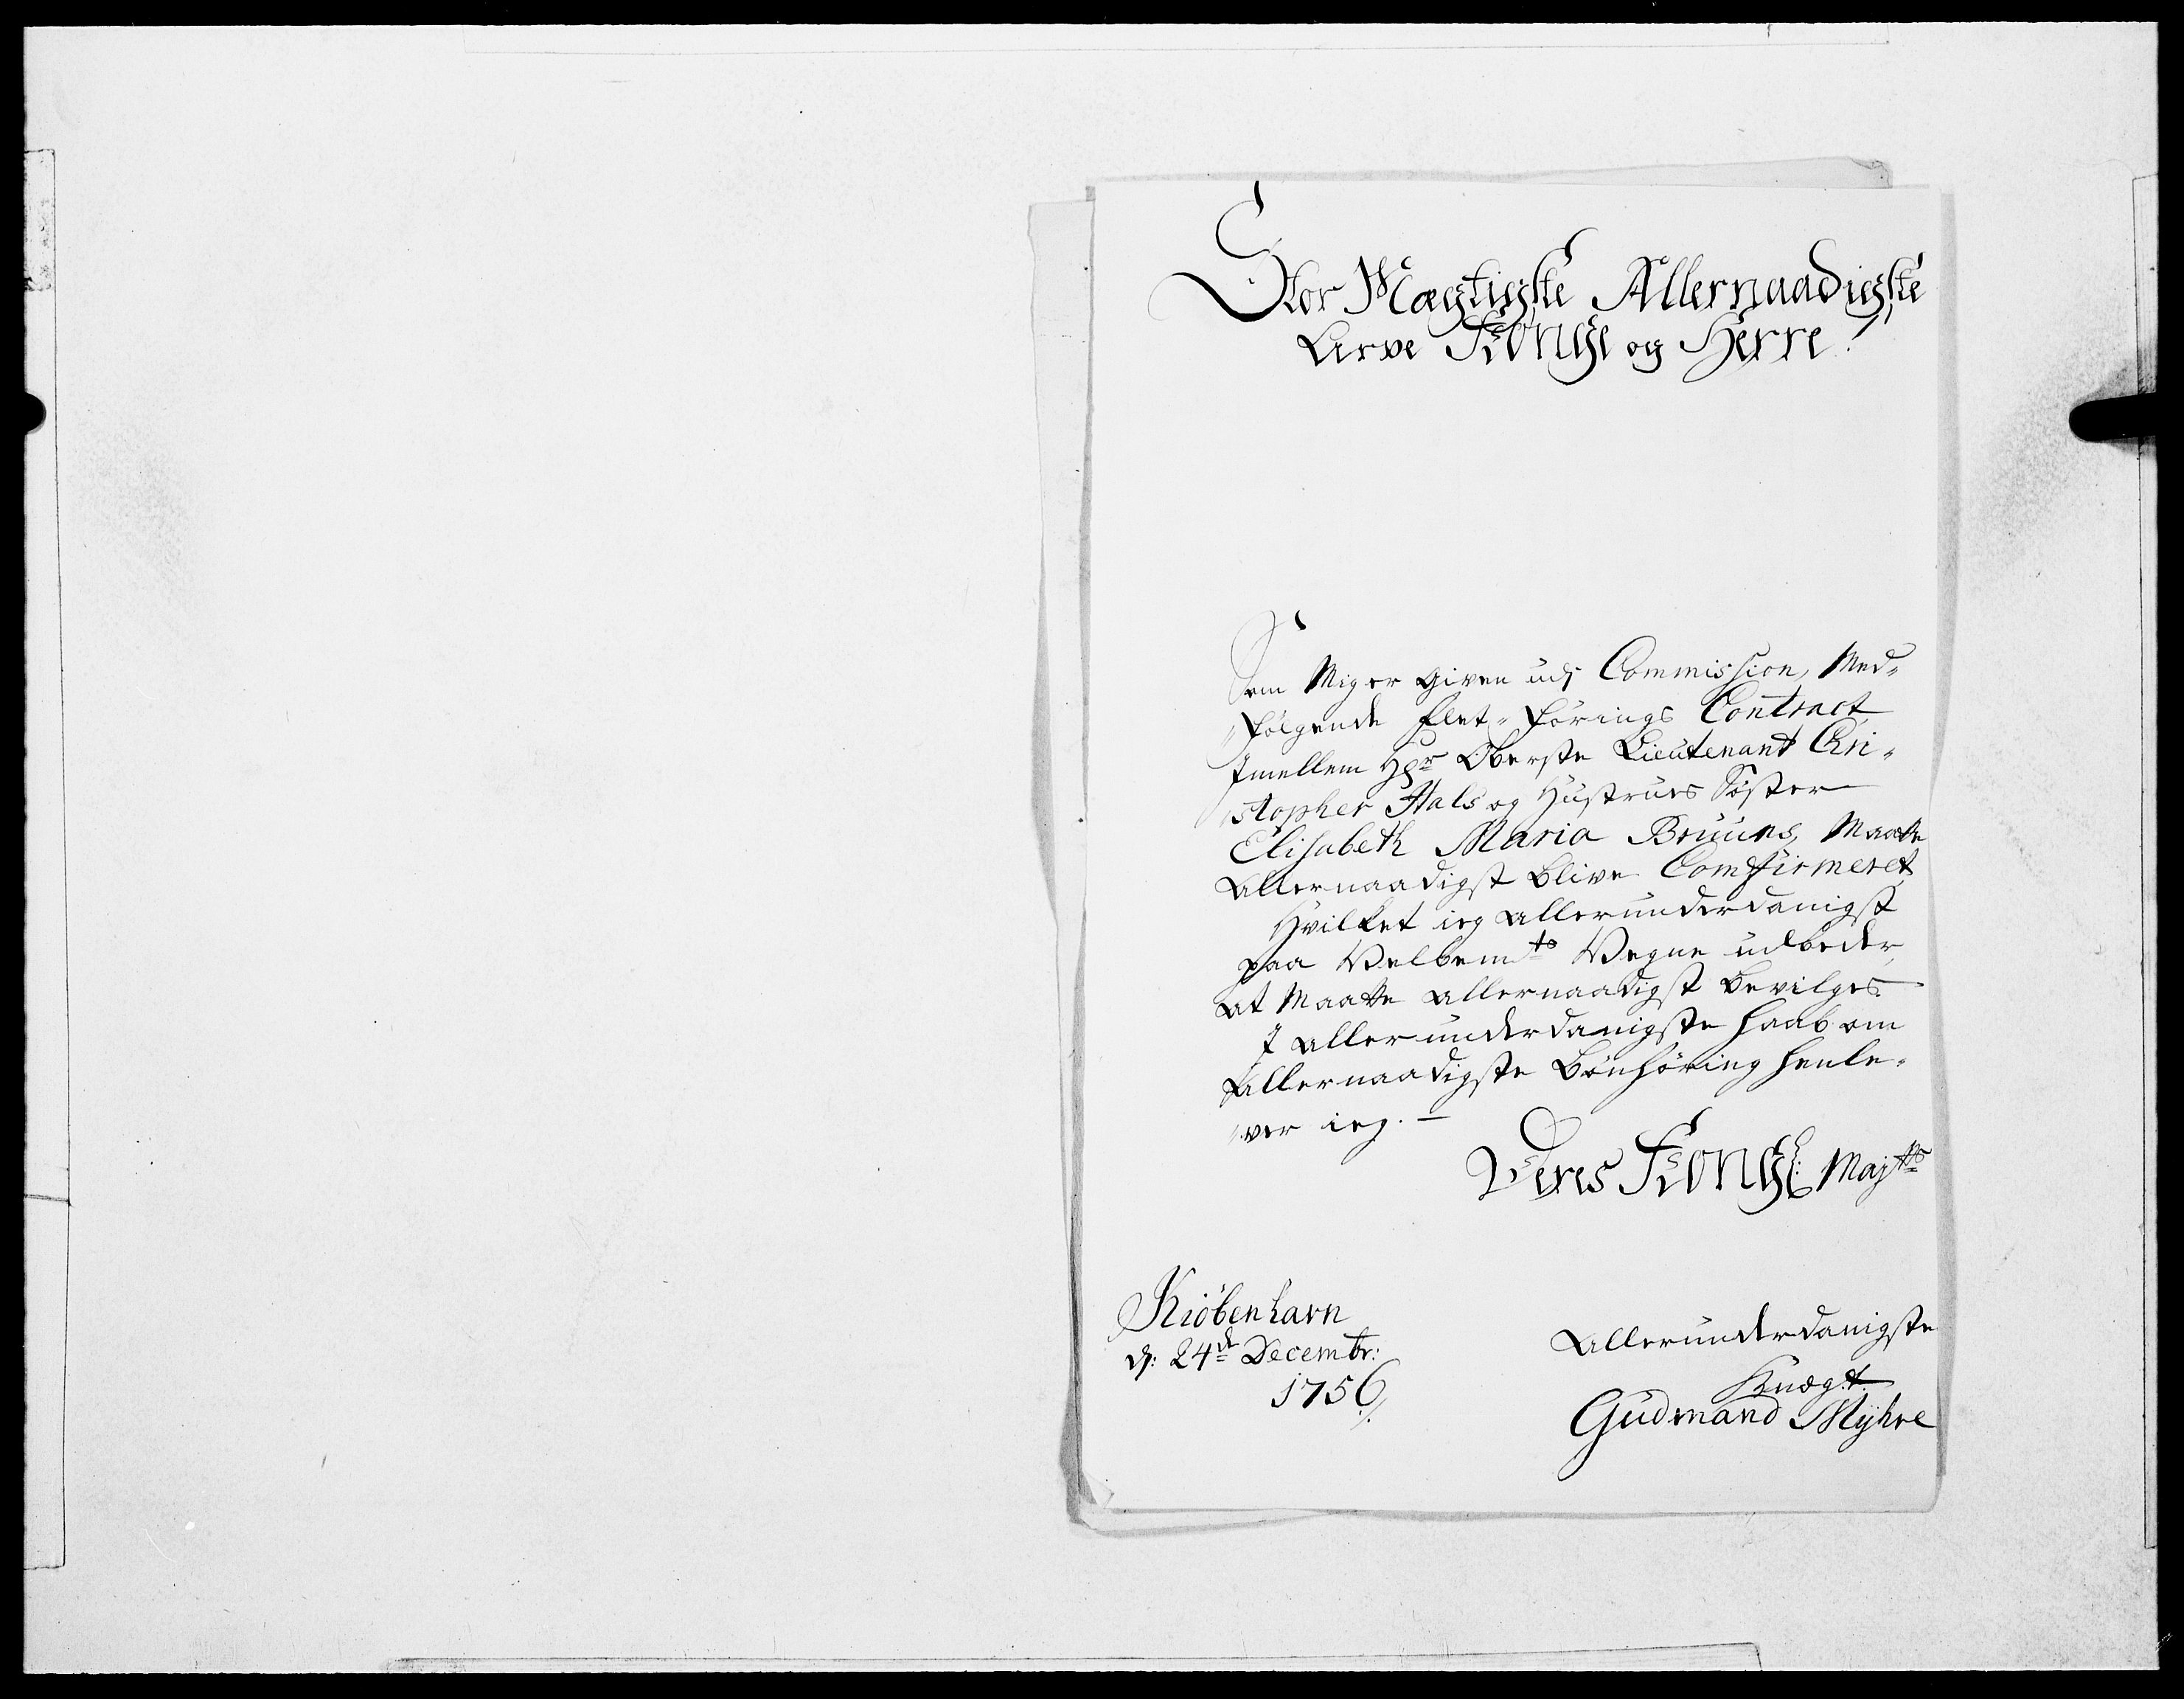 Stor Mægtigste Allernaadigste
Arve Konge og Herre!
Som Mig er given udj Commission, Med-
følgende Flet-førings Contract
Imellem Hr Oberste Lieutenant Chri-
stopher Hals og Hustrues Søster
Elisabeth Maria Bruuns, Maatte
Allernaadigst blive Comfirmeret,
Hvilket ieg allerunderdanigst
paa Velbemts Vegne udbeder,
at Maatte allernaadigst bevilges.
I allerunderdanigste Haab om
Allernaadigste Bønhøring henle-
ver ieg. —
Deres Kongl: Majts
Kiöbenhavn
d: 24de Decembr:
1756
Allerunderdanigste
Knægt
Gudmand Myhre